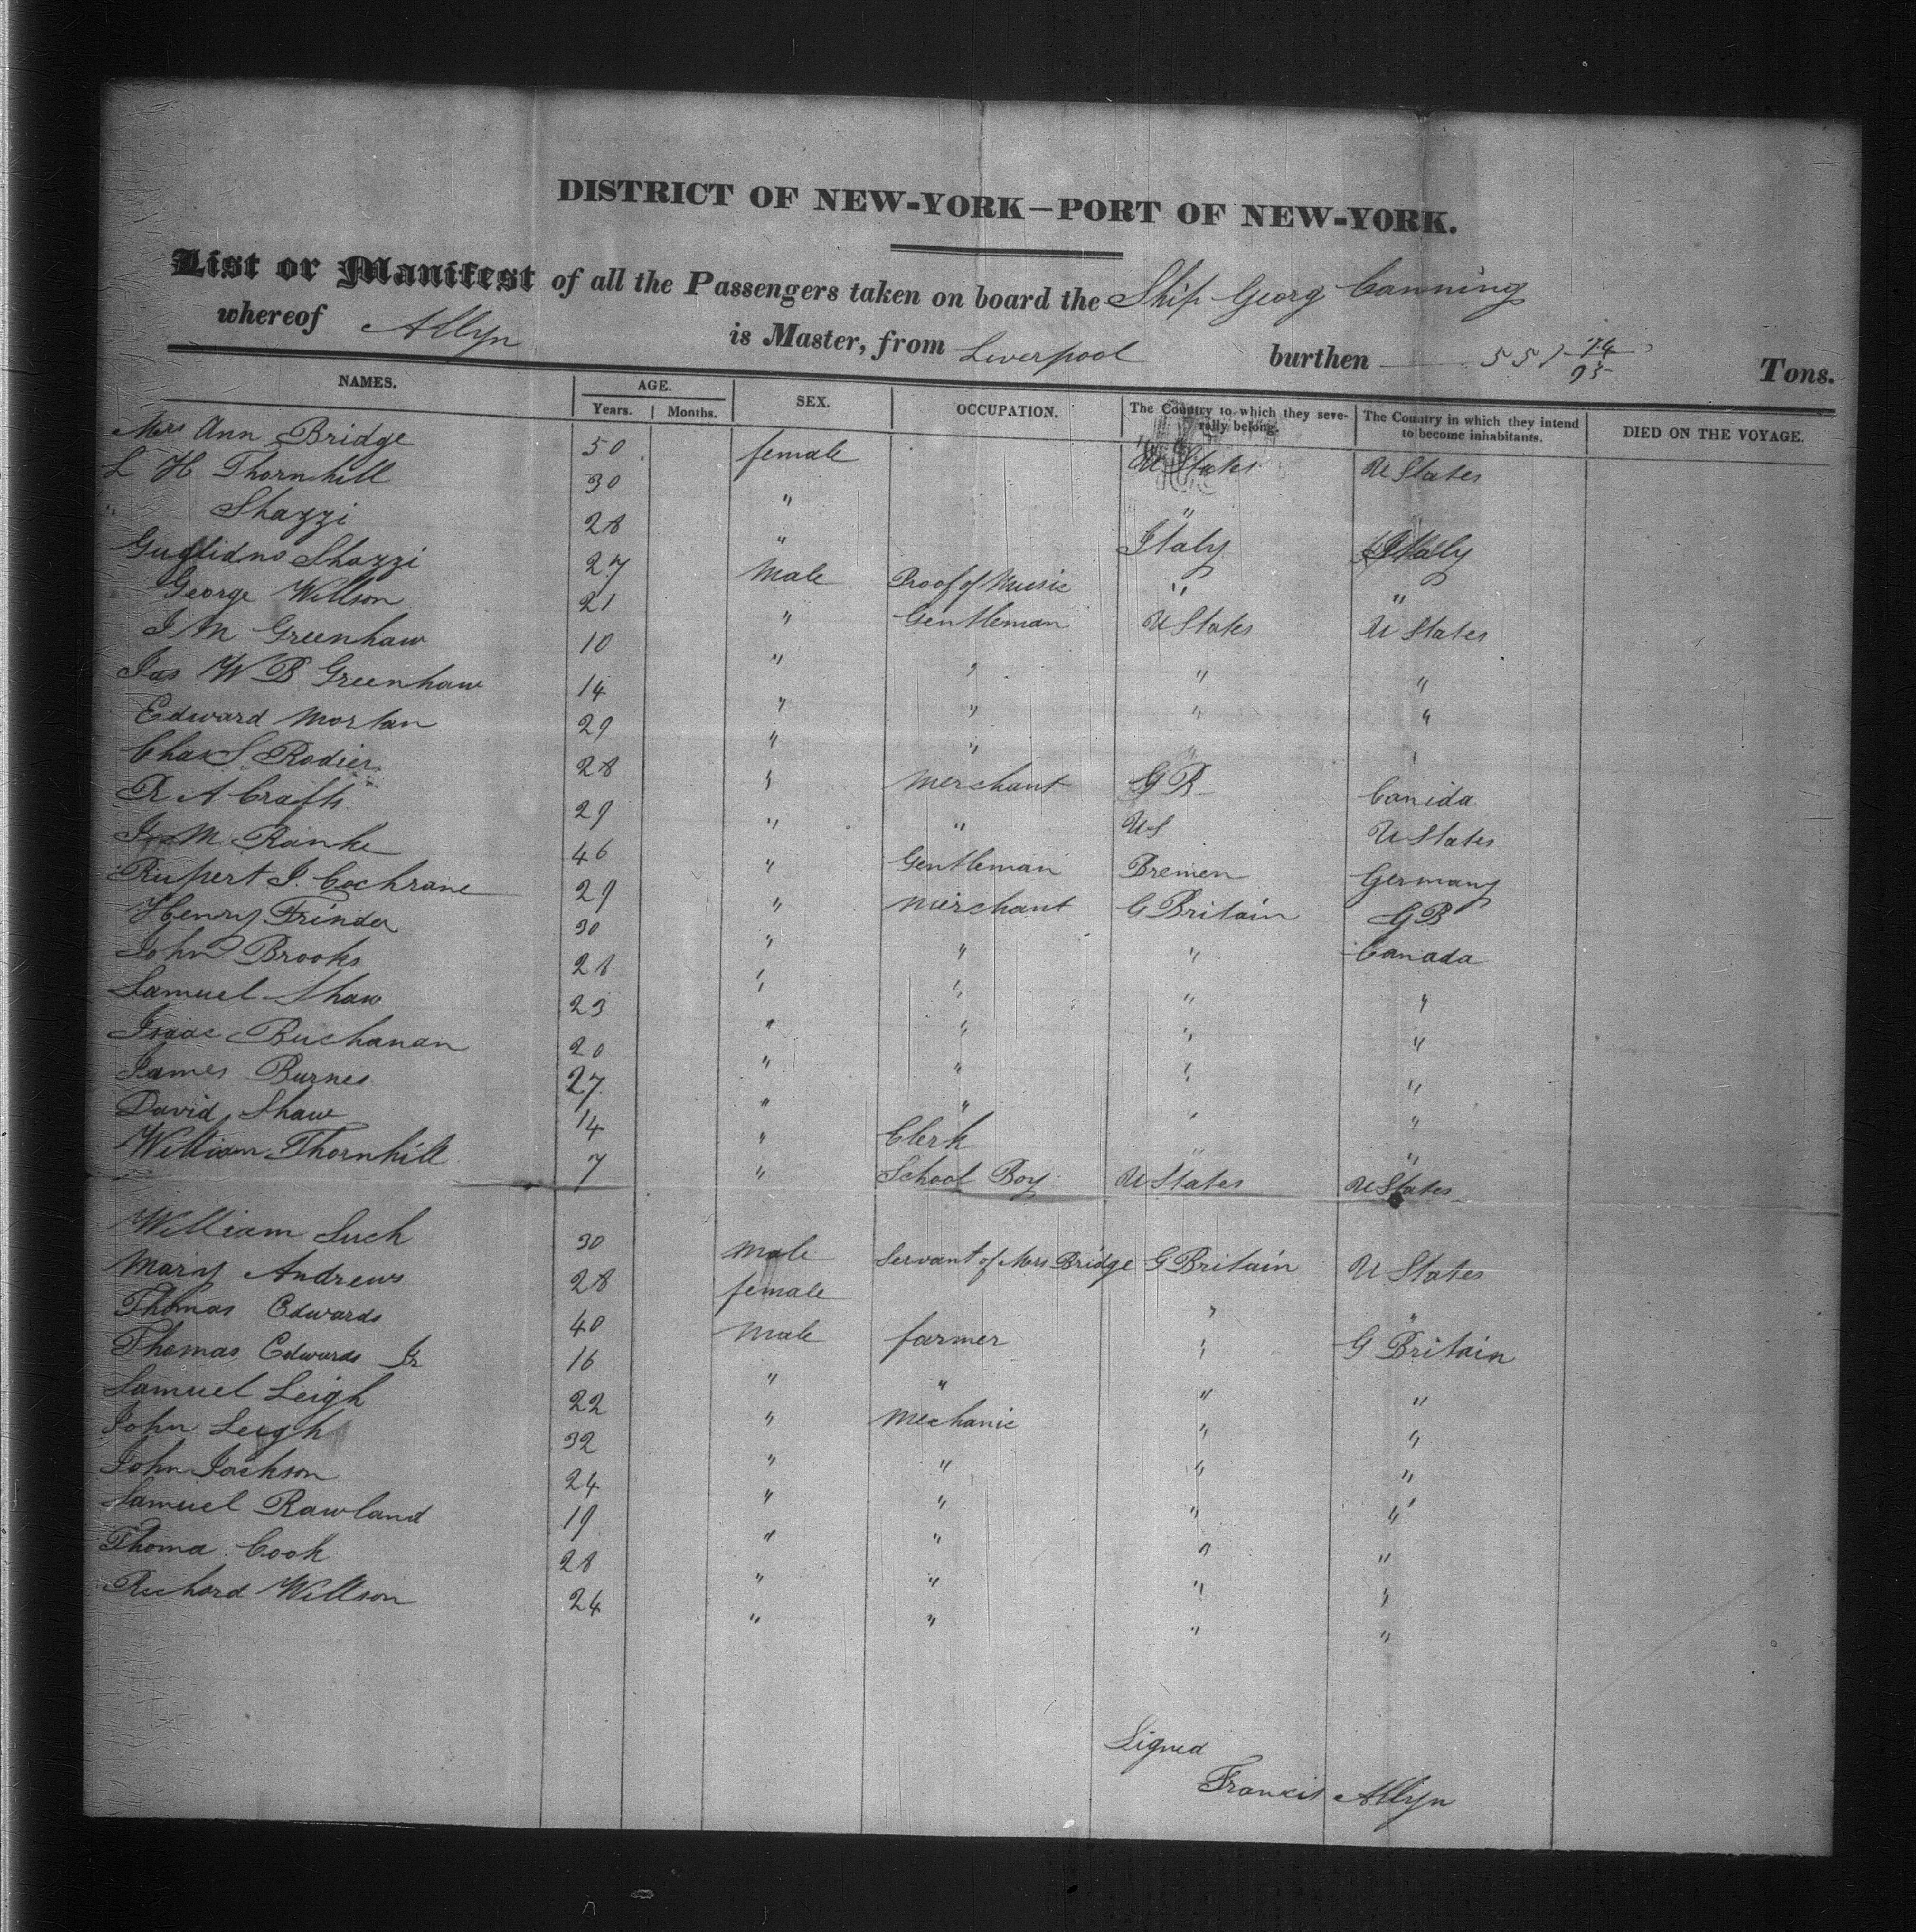 DISTRICT OF NEW-YORK—PORT OF NEW-YORK.
List or Manifest of all the Passengers taken on board the Ship Georg Canning
whereof Allyn is Master, from Liverpool burthen 551 74/95 Tons.
NAMES. AGE. Years. Months. SEX. OCCUPATION. The Country to which they severally belong. The Country in which they intend to become inhabitants. DIED ON THE VOYAGE.
Mrs Ann Bridge 50 female U States U States
L H Thornhill 30 " "
" Shazzi 28 " Italy Italy
Shazzi 27 Male Proof of Music " "
George Willson 21 " Gentleman U States U States
J M Greenhaw 10 " " " "
Jas W B Greenhaw 14 " " " "
Edward Mortan 29 " " " "
Chas S. Rodier 28 " Merchant G B Canida
R A Crafts 29 " " US U States
J M Ranke 46 " Gentleman Bremen Germany
Rupert J. Cochrane 29 " Merchant G Britain G B
Henry 30 " " " Canada
John Brooks 28 " " " "
Samuel Shaw 23 " " " "
Isaac Buchanan 20 " " " "
James Burnes 27 " " " "
David Shaw 14 " Clerk " "
William Thornhill 7 " School Boy U States U States
William Such 30 Male Servant of Mrs Bridge G Britain U States
Mary Andrews 28 female " "
Thomas Edwards 40 Male farmer " G Britain
Thomas Edwards Jr 16 " " " "
Samuel Leigh 22 " Mechanic " "
John Leigh 32 " " " "
John Jackson 24 " " " "
Samuel Rawland 19 " " " "
Thoma Cook 28 " " " "
Richard Willson 24 " " " "
Signed
Francis Allyn